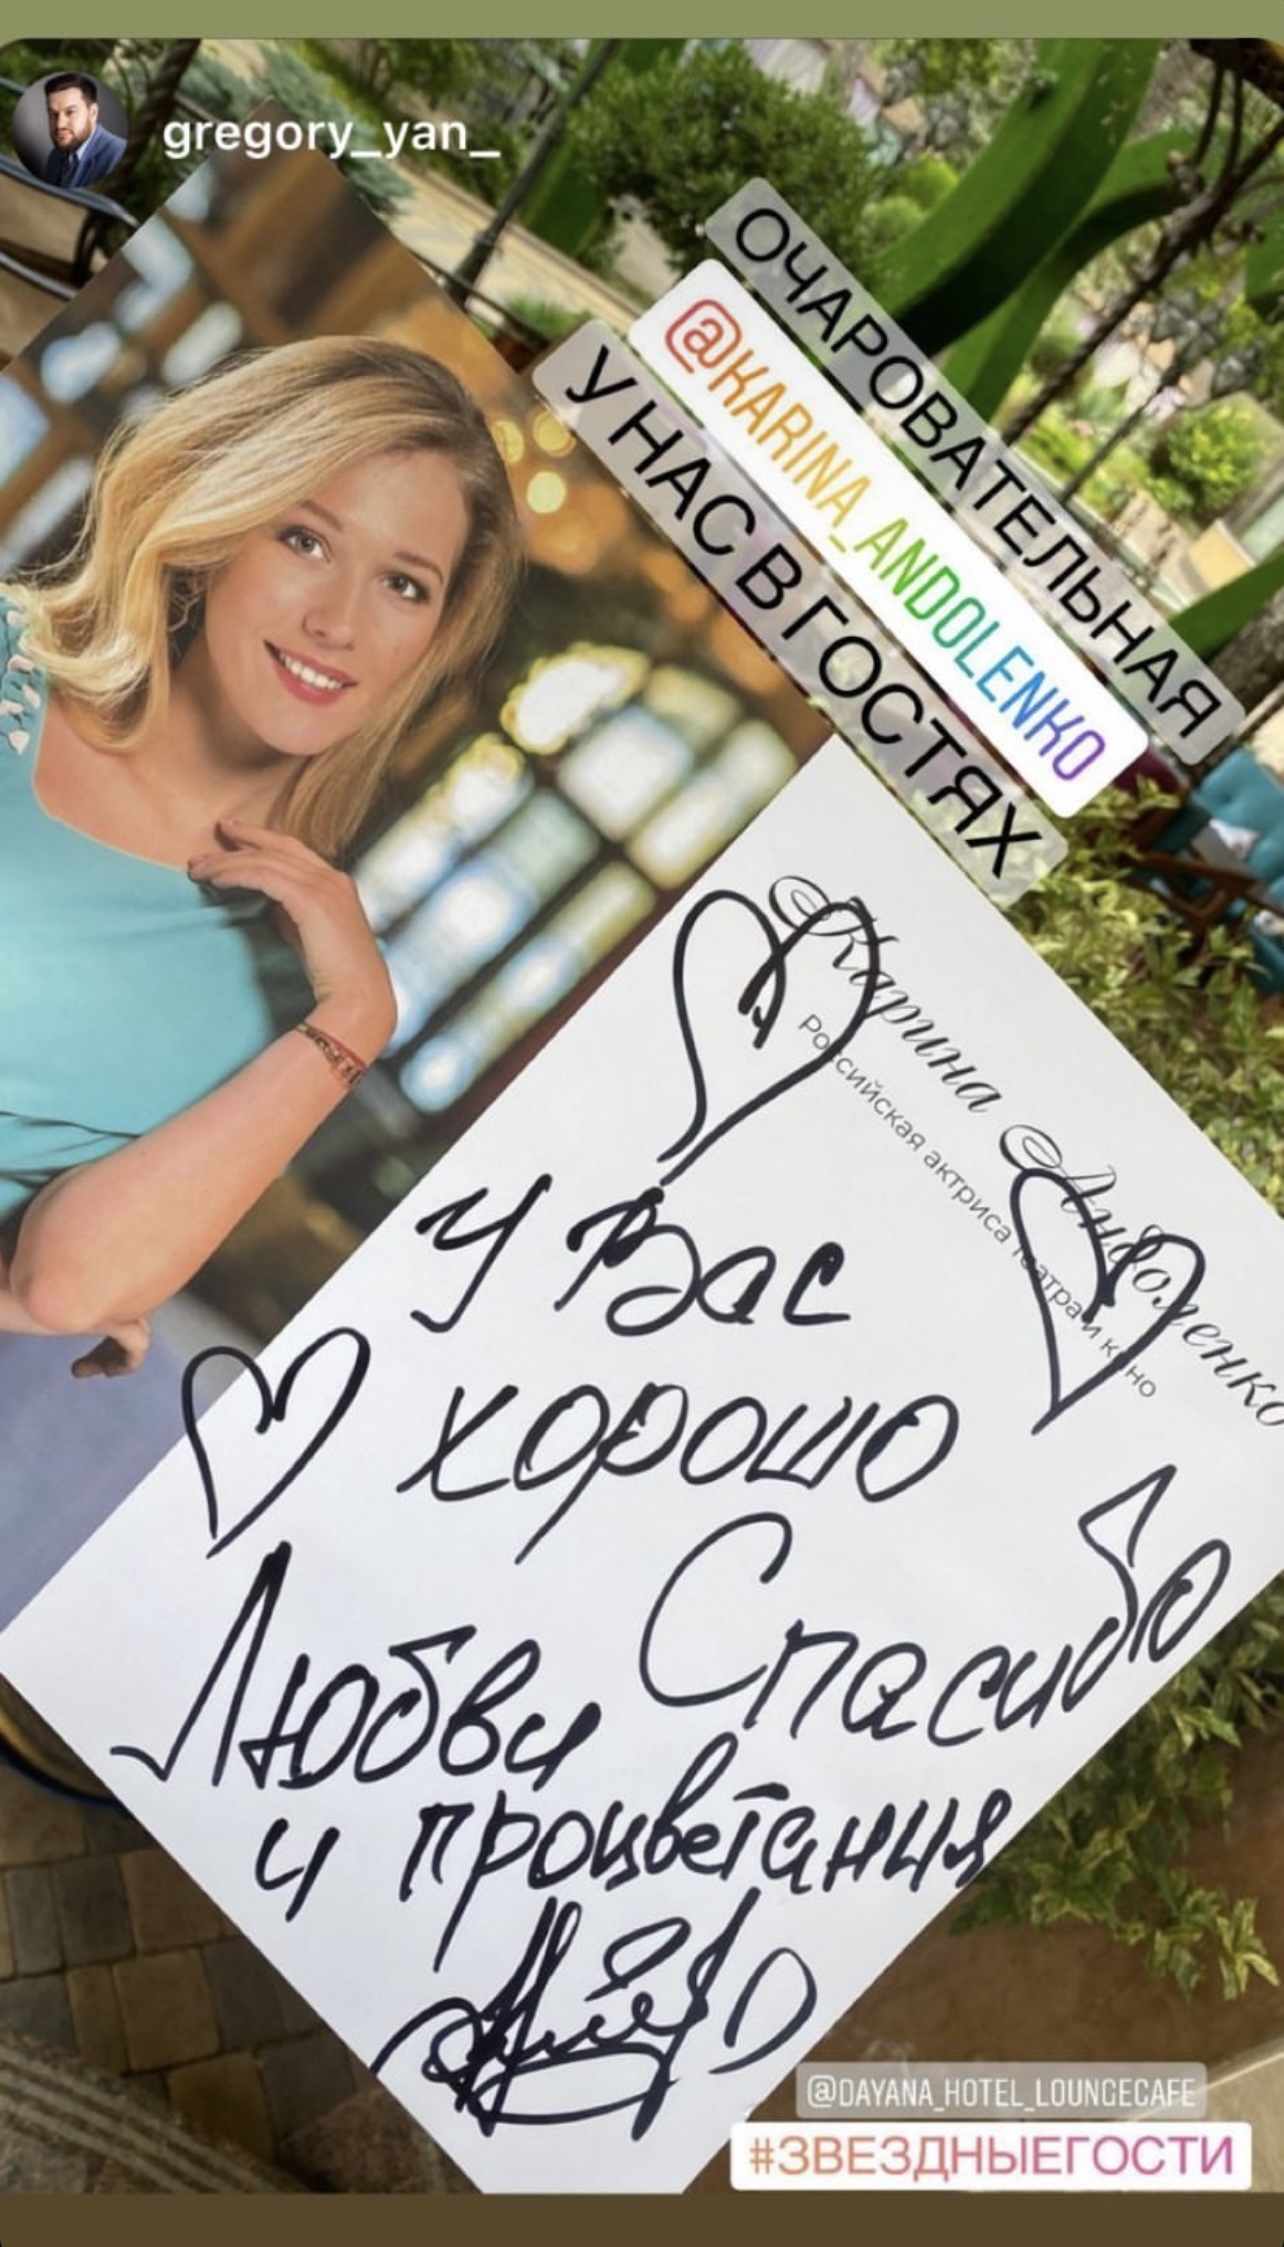 gregory_yan_
ОЧАРОВАТЕЛЬНАЯ
@KARINA_ANDOLENKO
У НАС В ГОСТЯХ
Карина Андоленко
Российская актриса театра и кино
У Вас
хорошо
Спасибо
Любви
и процветания
@DAYANA_HOTEL_LOUNGECAFE
#ЗВЕЗДНЫЕГОСТИ